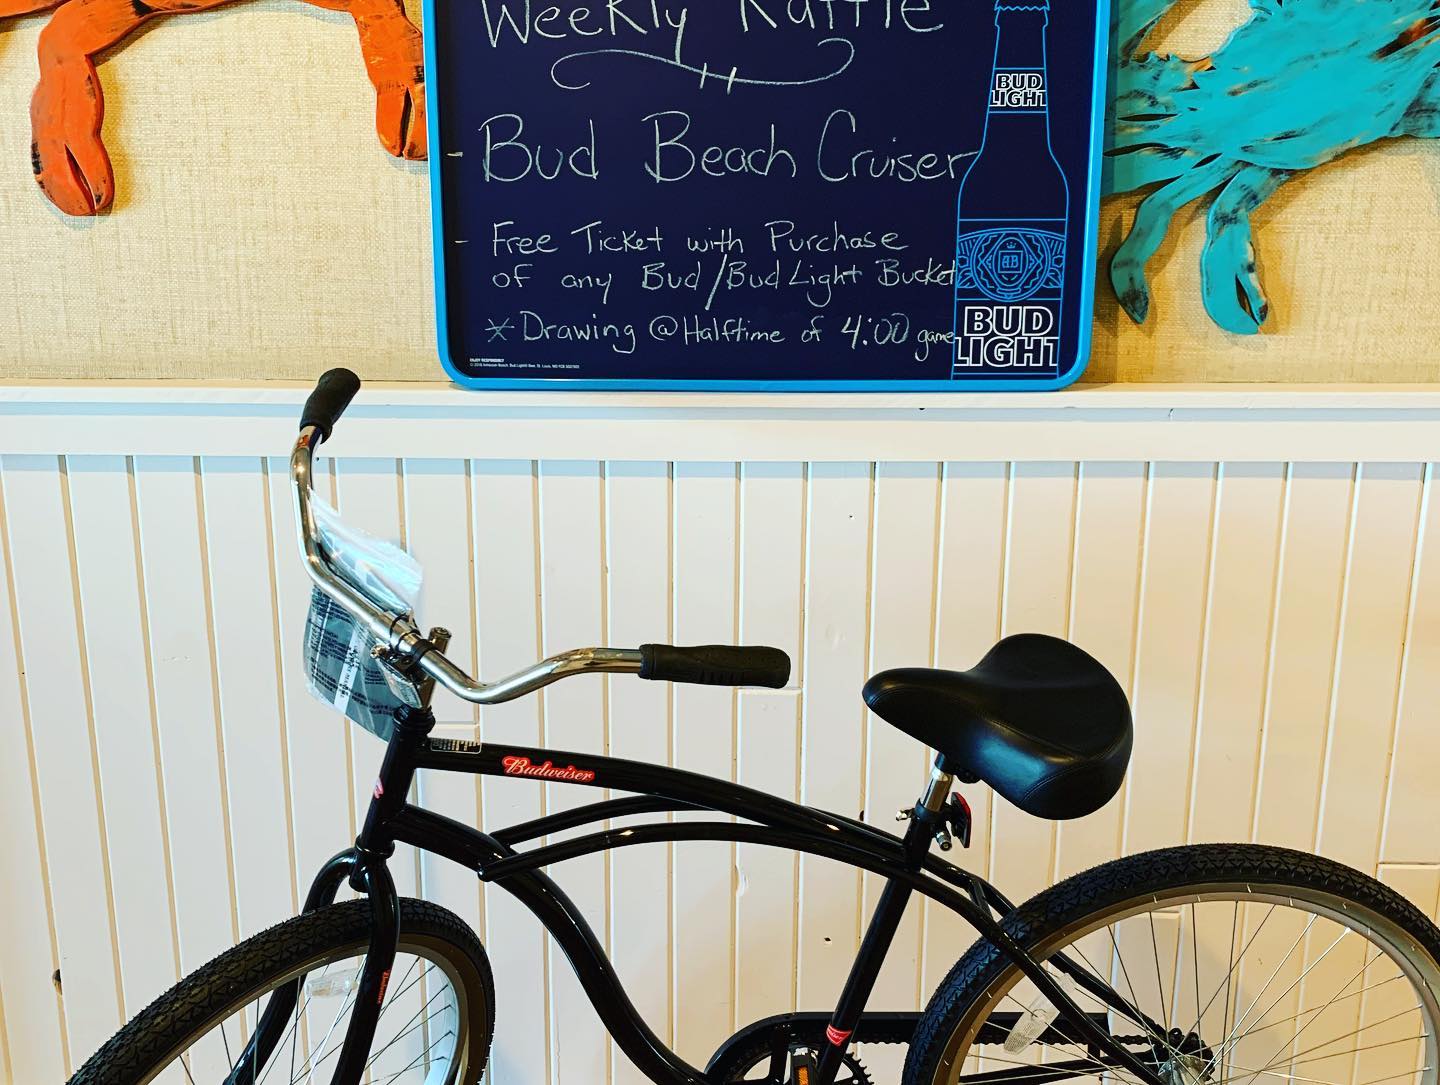 Weekly Raffle
BUD
LIGHT
- Bud Beach Cruiser
- Free Ticket with Purchase
of any Bud/Bud Light Bucket
* Drawing @ Halftime of 4:00 game
BUD
LIGHT
ENJOY RESPONSIBLY
Budweiser